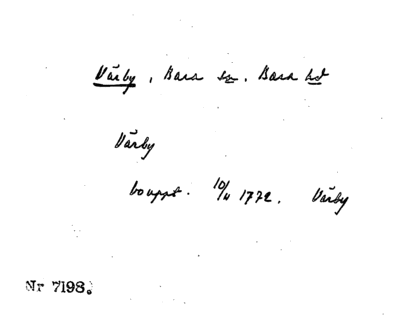 Vårby, Bara sn. Bara hd
Vårby
bouppt. 10/11 1772. Vårby
Nr 7198.